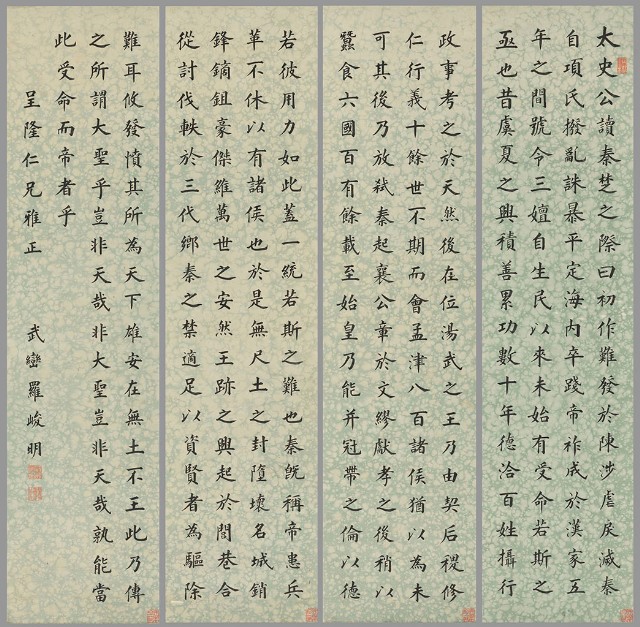 太史公讀秦楚之際曰初作難發於陳涉虐戾滅秦
自項氏撥亂誅暴平定海內卒踐帝祚成於漢家五
年之間號令三嬗自生民以來未始有受命若斯之
亟也昔虞夏之興積善累功數十年德洽百姓攝行
政事考之於天然後在位湯武之王乃由契后稷修
仁行義十餘世不期而會孟津八百諸侯猶以為未
可其後乃放弒秦起襄公章於文繆獻孝之後稍以
蠶食六國百有餘載至始皇乃能并冠帶之倫以德
若彼用力如此蓋一統若斯之難也秦旣稱帝患兵
革不休以有諸侯也於是無尺土之封墮壞名城銷
鋒鏑鉏豪傑維萬世之安然王跡之興起於閭巷合
從討伐軼於三代鄉秦之禁適足以資賢者為驅除
難耳攸發憤其所為天下雄安在無土不王此乃傳
之所謂大聖乎豈非天哉非大聖豈非天哉孰能當
此受命而帝者乎
呈隆仁兄雅正
武巒羅峻明